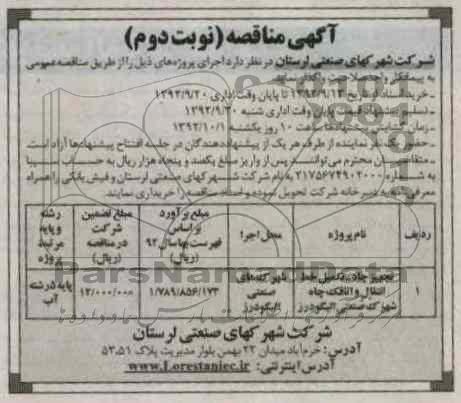 آگهی مناقصه (نوبت دوم)
شرکت شهرکهای صنعتی لرستان در نظر دارد اجرای پروژه‌های ذیل را از طریق مناقصه عمومی
به پیمانکار واجد صلاحیت واگذار نماید.
- خرید اسناد از تاریخ ۱۳۹۲/۹/۱۳ تا پایان وقت اداری ۱۳۹۲/۹/۲۰
- تسلیم پیشنهاد قیمت پایان وقت اداری شنبه ۱۳۹۲/۹/۳۰
- زمان گشایش پیشنهادها ساعت ۱۰ روز یکشنبه ۱۳۹۲/۱۰/۱
- حضور یک نفر نماینده از طرف هر یک از پیشنهاددهندگان در جلسه افتتاح پیشنهادها آزاد است.
- متقاضیان محترم می‌توانند پس از واریز مبلغ یکصد و پنجاه هزار ریال به حساب سیبا
به شماره ۲۱۷۵۶۷۴۹۰۲۰۰۰ به نام شرکت شهرکهای صنعتی لرستان و فیش بانکی را همراه
معرفی‌نامه به دبیرخانه شرکت تحویل نموده و اسناد مناقصه را خریداری نمایند.
ردیف
نام پروژه
محل اجرا
مبلغ برآورد براساس فهرست بها سال ۹۲ (ریال)
مبلغ تضمین شرکت در مناقصه (ریال)
رشته و پایه مرتبط پروژه
۱
تجهیز چاه، تکمیل خط انتقال و اتاقک چاه شهرک صنعتی الیگودرز
شهرک‌های صنعتی الیگودرز
۱/۷۸۹/۸۵۶/۱۷۳
۱۲/۰۰۰/۰۰۰
پایه ۵ رشته آب
ParsNamadData
شرکت شهرکهای صنعتی لرستان
آدرس: خرم‌آباد میدان ۲۲ بهمن بلوار مدیریت پلاک ۵۳،۵۱
آدرس اینترنتی: www.Lorestaniec.ir